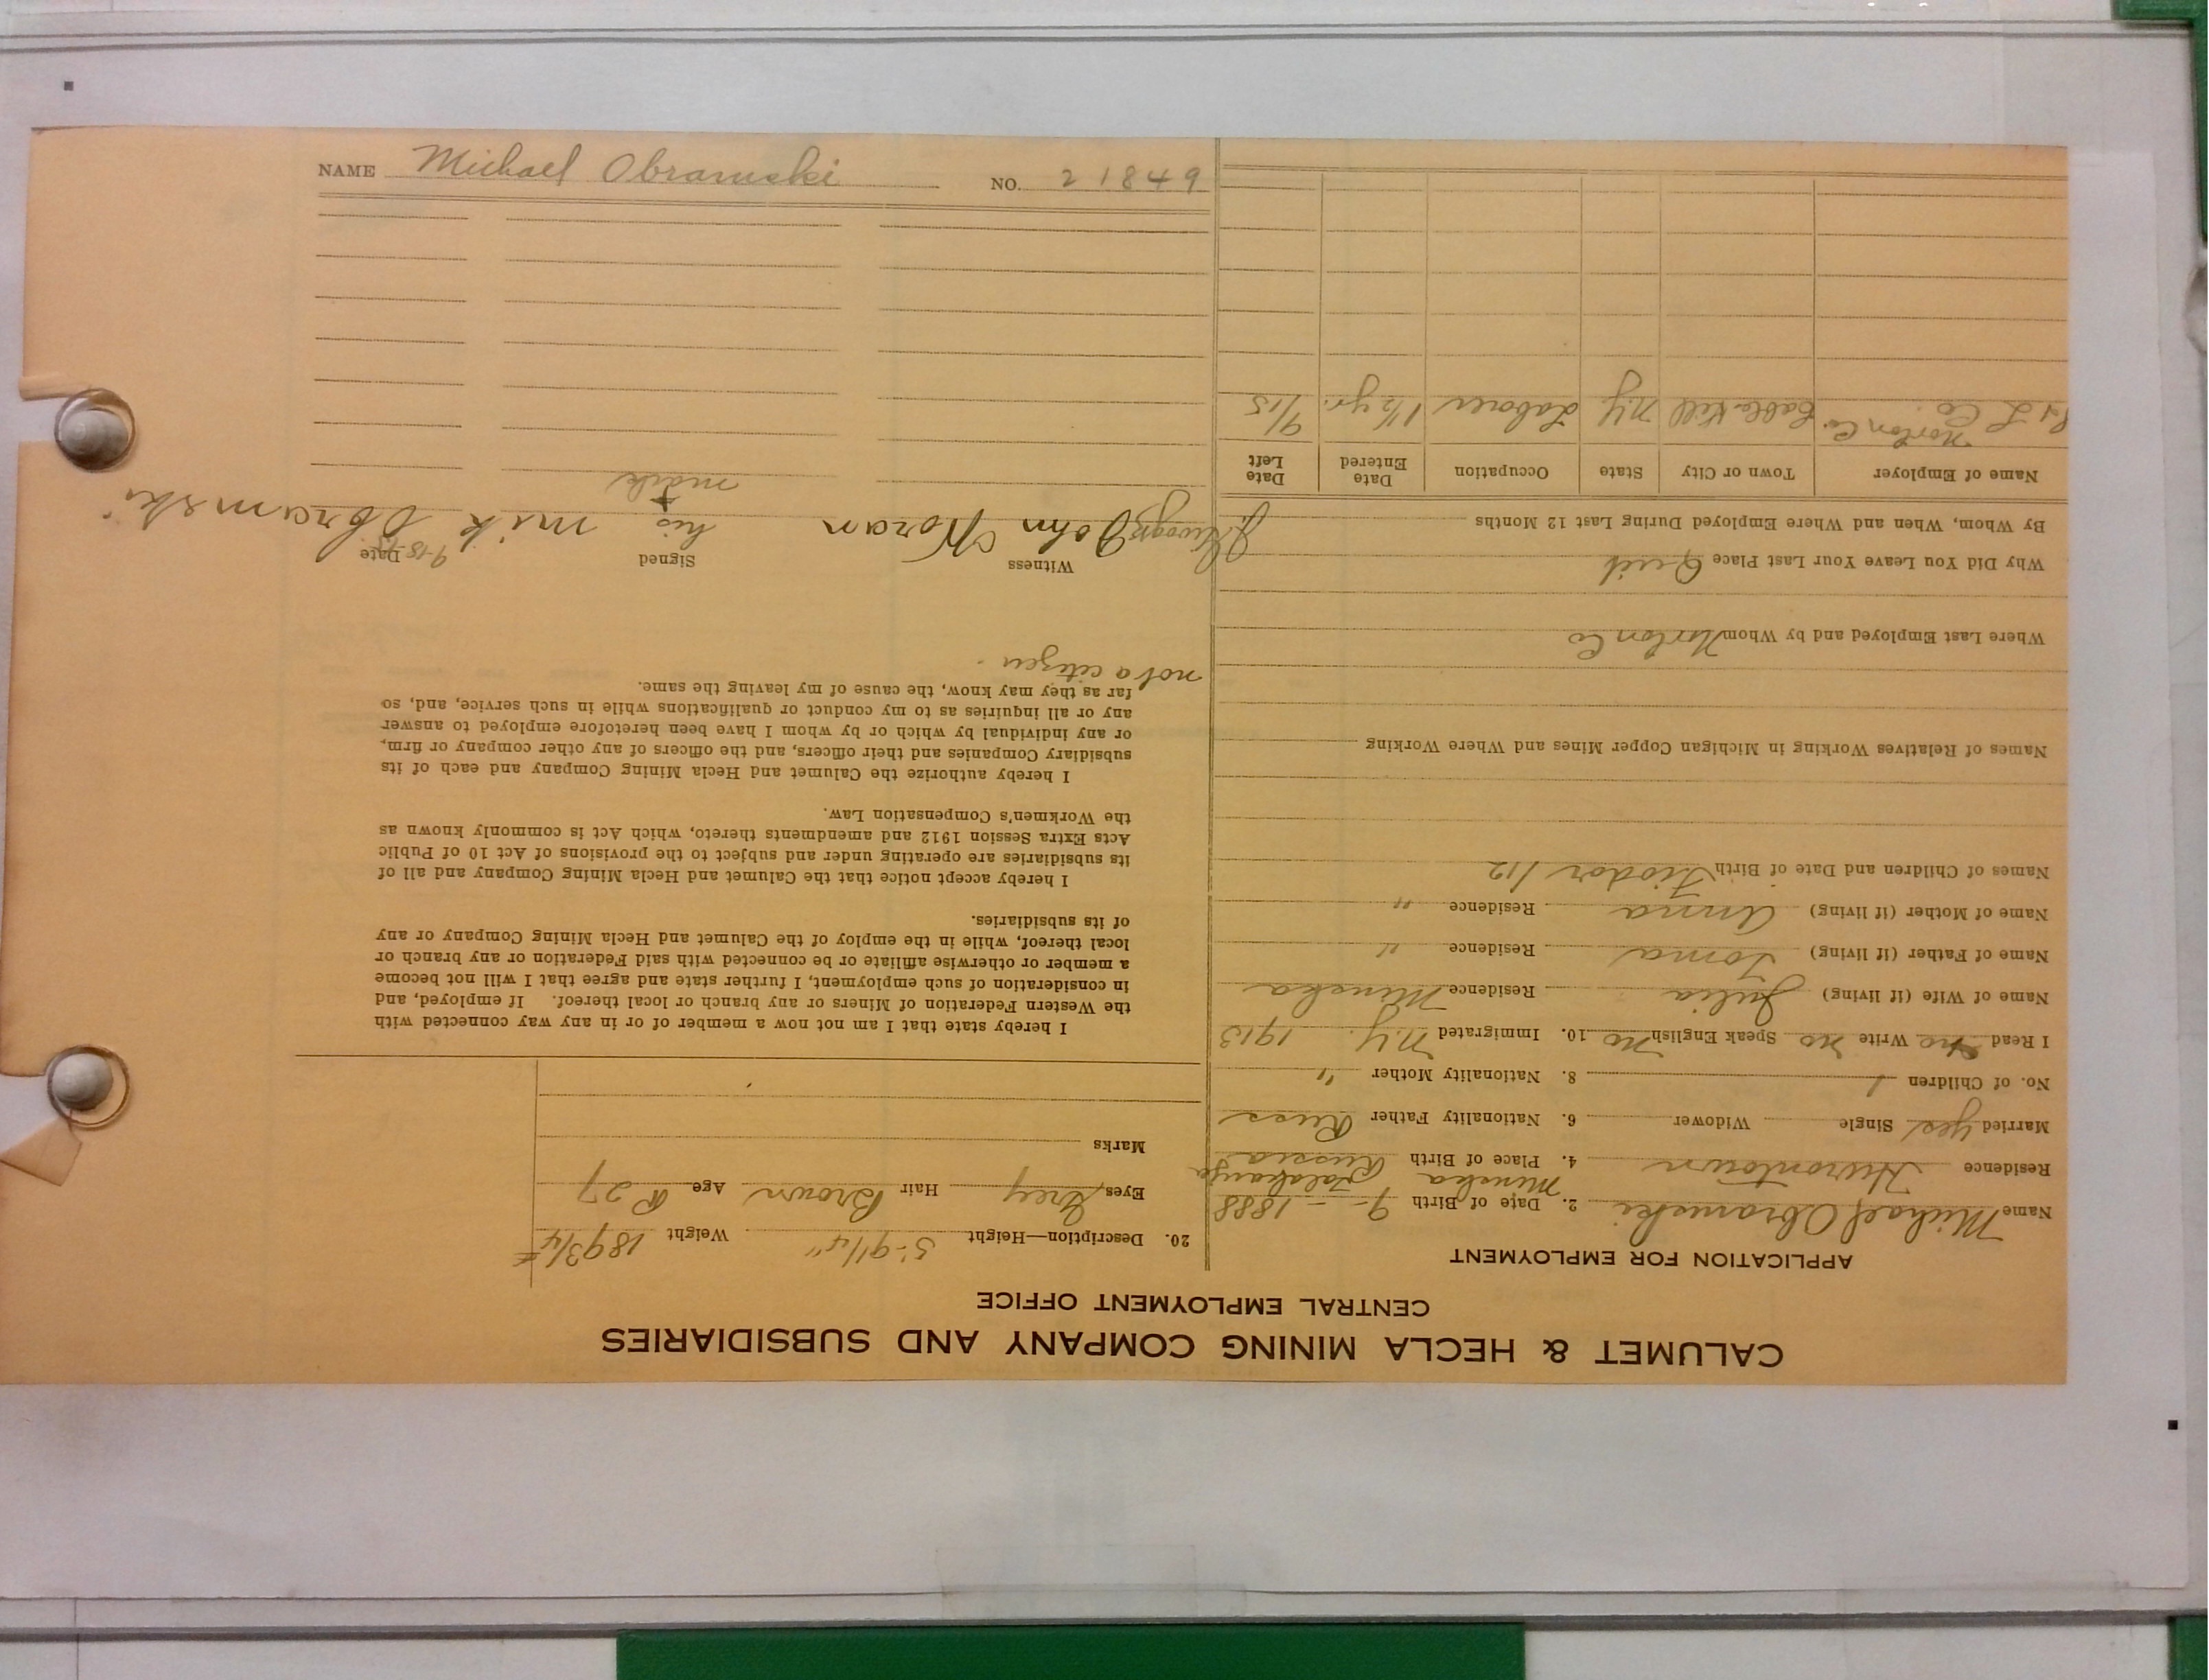 NAME Michael Obramski NO. 21849
CALUMET & HECLA MINING COMPANY AND SUBSIDIARIES
CENTRAL EMPLOYMENT OFFICE
APPLICATION FOR EMPLOYMENT
Name Michael Obramski 2. Date of Birth 9 - - 1888
Minska
Residence Hurontown 4. Place of Birth Russia
Married Yes Single Widower 6. Nationality Father Russ
No. of Children 1 8. Nationality Mother "
I Read no Write no Speak English no 10. Immigrated N.Y. 1913
Name of Wife (if living) Julia Residence Minska
Name of Father (if living) Toma Residence "
Name of Mother (if living) Anna Residence "
Names of Children and Date of Birth Fiodor /12
Names of Relatives Working in Michigan Copper Mines and Where Working
Where Last Employed and by Whom Norton Co
Why Did You Leave Your Last Place Quit
By Whom, When and Where Employed During Last 12 Months
Name of Employer Town or City State Occupation Date Entered Date Left
Norton Co. N.Y. Laborer 1 1/2 yr. 9/15
L Co
20. Description—Height 5'-9 1/4" Weight 189 3/4 #
Eyes Grey Hair Brown Age 27
Marks
I hereby state that I am not now a member of or in any way connected with
the Western Federation of Miners or any branch or local thereof. If employed, and
in consideration of such employment, I further state and agree that I will not become
a member or otherwise affiliate or be connected with said Federation or any branch or
local thereof, while in the employ of the Calumet and Hecla Mining Company or any
of its subsidiaries.
I hereby accept notice that the Calumet and Hecla Mining Company and all of
its subsidiaries are operating under and subject to the provisions of Act 10 of Public
Acts Extra Session 1912 and amendments thereto, which Act is commonly known as
the Workmen's Compensation Law.
I hereby authorize the Calumet and Hecla Mining Company and each of its
subsidiary Companies and their officers, and the officers of any other company or firm,
or any individual by which or by whom I have been heretofore employed to answer
any or all inquiries as to my conduct or qualifications while in such service, and, so
far as they may know, the cause of my leaving the same.
not a citizen.
Witness Signed Date
John Koran his mik Obramski
+
mark